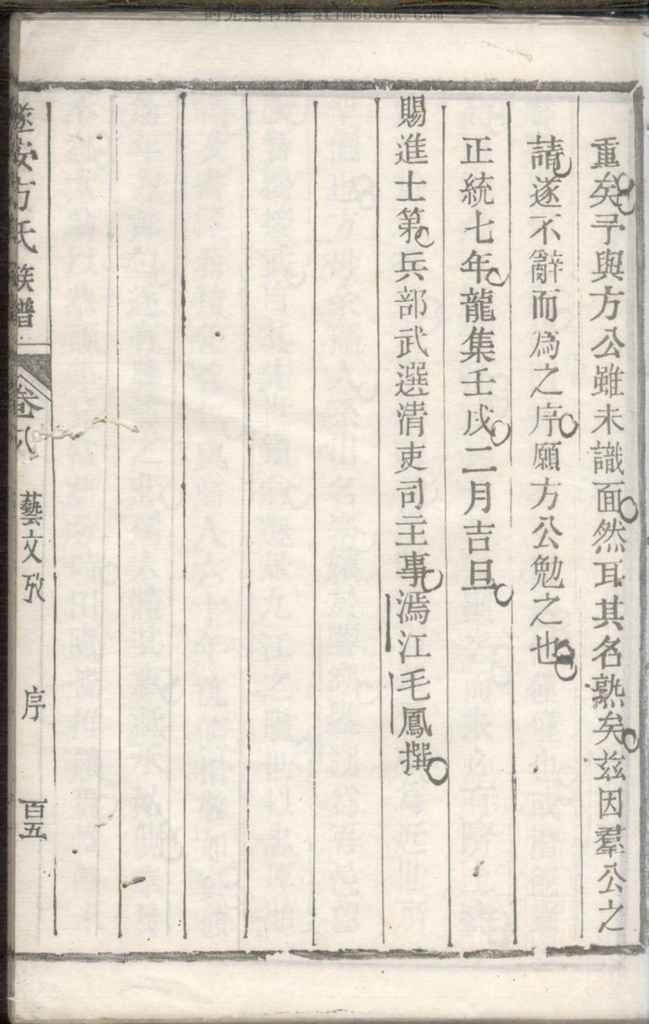 时光图书馆 atimebook.com
重矣予與方公雖未識面然耳其名熟矣茲因羣公之
請遂不辭而為之序願方公勉之也
正統七年龍集壬戌二月吉旦
賜進士第兵部武選清吏司主事漹江毛鳳撰
遂安方氏族譜 卷八 藝文攷 序 百五